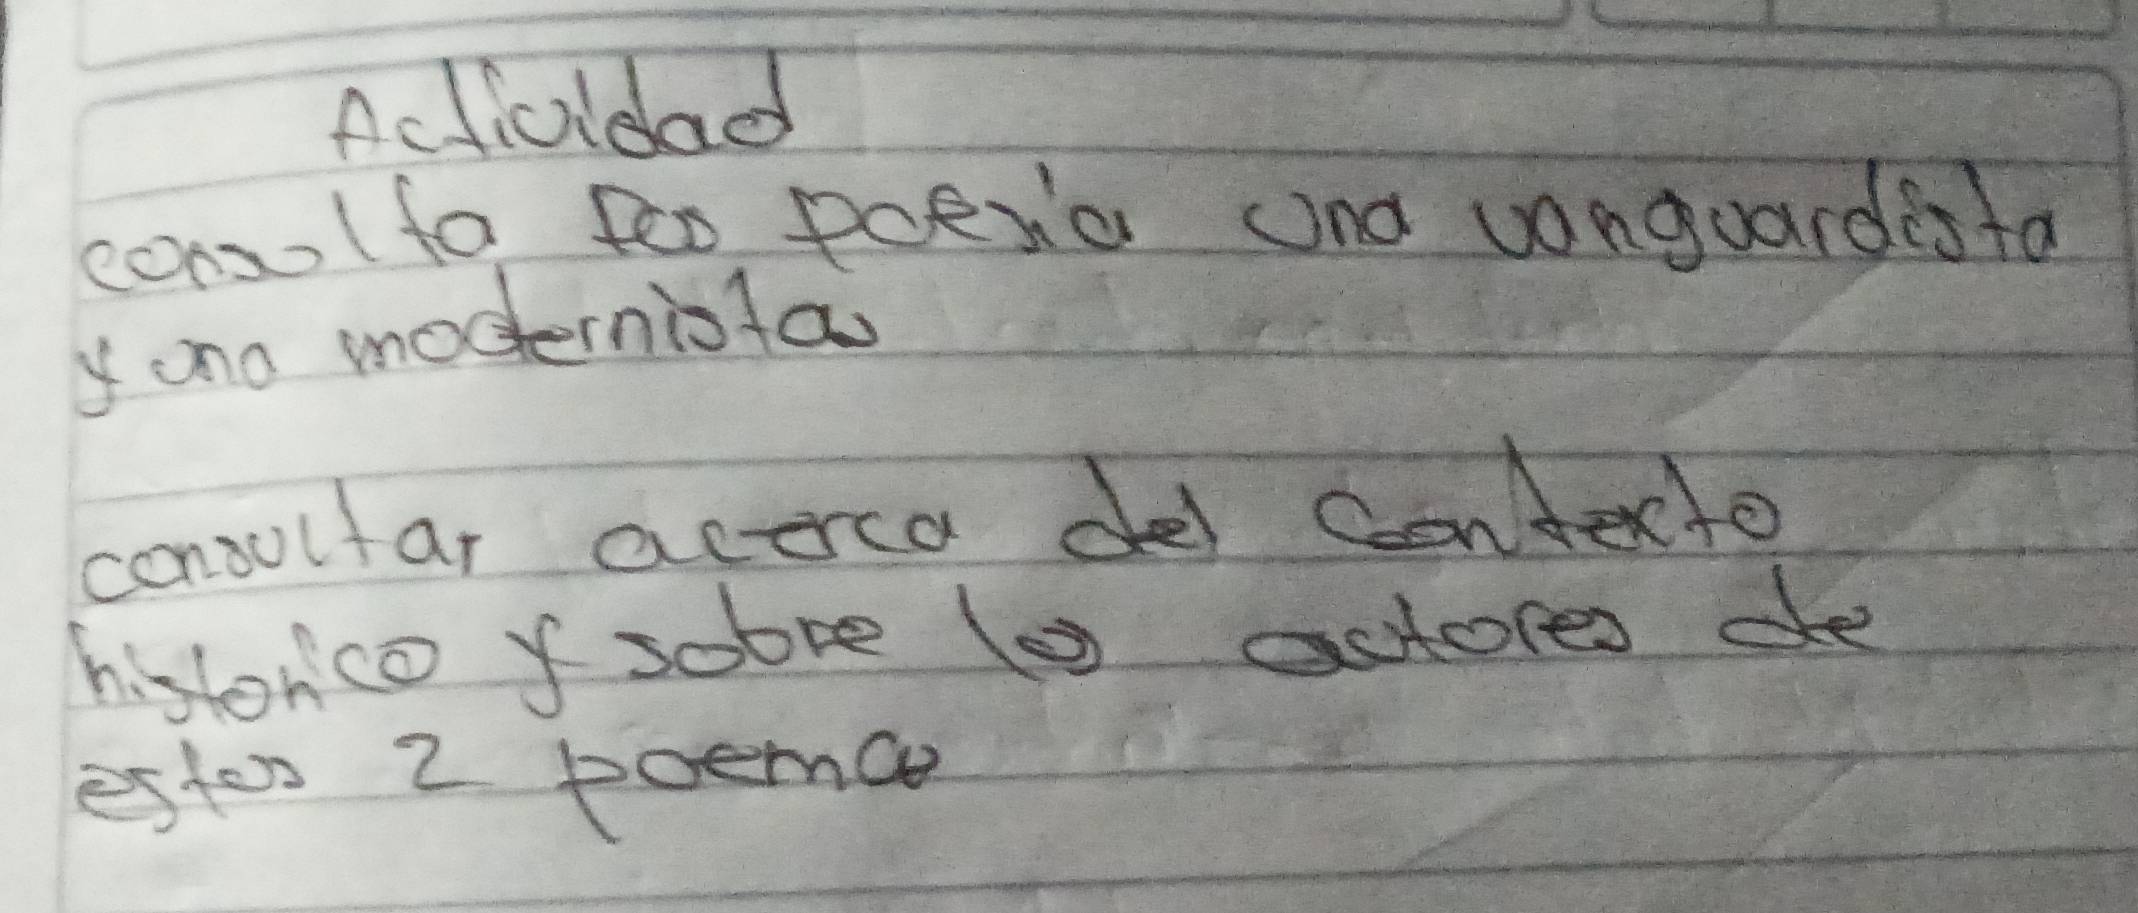 Actividad
consulta dos poesia una vanguardista
y una modernista
consultar acerca del contexto
historico y sobre los autores de
estos 2 poemas